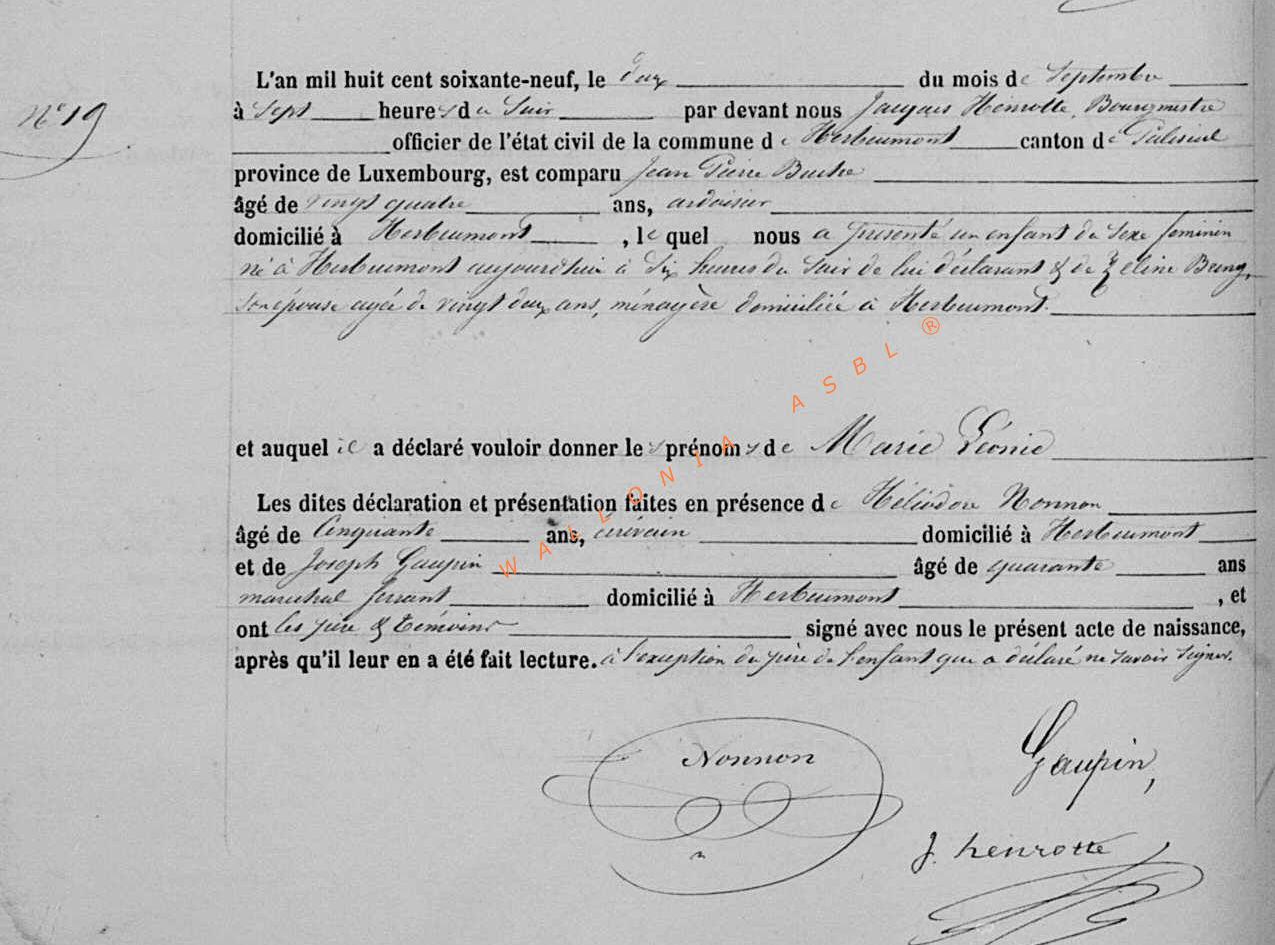 N° 19
L'an mil huit cent soixante-neuf, le deux du mois de Septembre
à Sept heures du Soir par devant nous Jacques Henrotte, Bourgmestre
officier de l'état civil de la commune de Herbeumont canton de Paliseul
province de Luxembourg, est comparu Jean Pierre
âgé de vingt quatre ans, ardoisier
domicilié à Herbeumont, le quel nous a présenté un enfant du Sexe féminin
né à Herbeumont aujourd'hui à Six heures du Soir de lui déclarant & de Zéline
Son épouse agée de vingt deux ans, ménagère domiciliée à Herbeumont.
et auquel il a déclaré vouloir donner les prénoms de Marie Léonie
Les dites déclaration et présentation faites en présence de Héliodore Nonnon
âgé de Cinquante ans, écrivain domicilié à Herbeumont
et de Joseph Gaupin âgé de quarante ans
marechal ferrant domicilié à Herbeumont, et
ont les père & témoins signé avec nous le présent acte de naissance,
après qu'il leur en a été fait lecture. à l'exception du père de l'enfant que a déclaré ne savoir signer.
Nonnon
Gaupin,
J. henrotte
WALLONIA ASBL ®